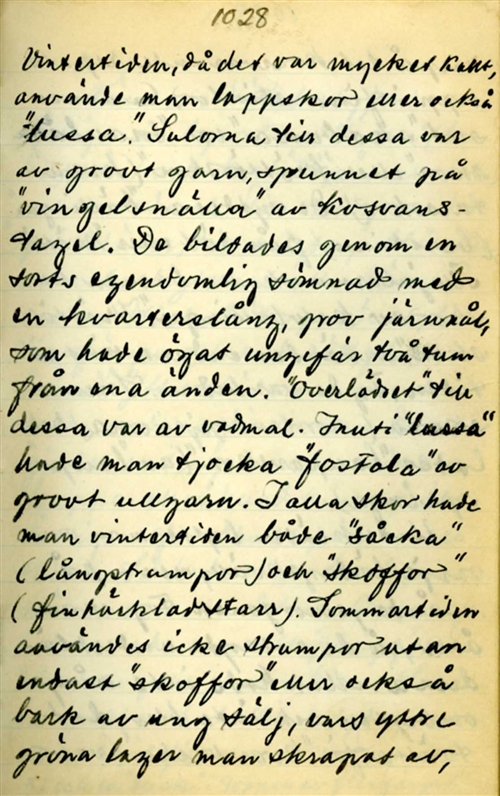 1028
Vintertiden, då det var mycket kallt,
använde man lappskor eller också
"lussa". Sulorna till dessa var
av grovt garn, spunnet på
"vingelsnälla" av kosvans-
tagel. De bildades genom en
sorts egendomlig sömnad med
en kvarterslång, grov järnnål,
som hade ögat ungefär två tum
från ena änden. "Overlädret" till
dessa var av vadmal. Inuti "lussa"
hade man tjocka "fostala" av
grovt ullgarn. I alla skor hade
man vintertiden både "såcka"
(långstrumpor) och "skoffor"
(finhäcklad starr). Sommartiden
användes icke strumpor utan
endast "skoffor" eller också
bark av ung sälj, vars yttre
gröna lager man skrapat av,